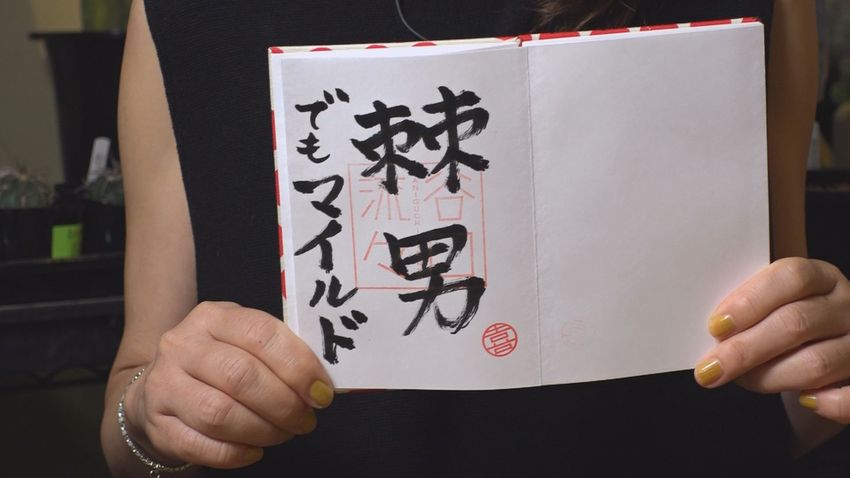 棘男
でもマイルド
谷口
流々
TANIGUCHI
喜